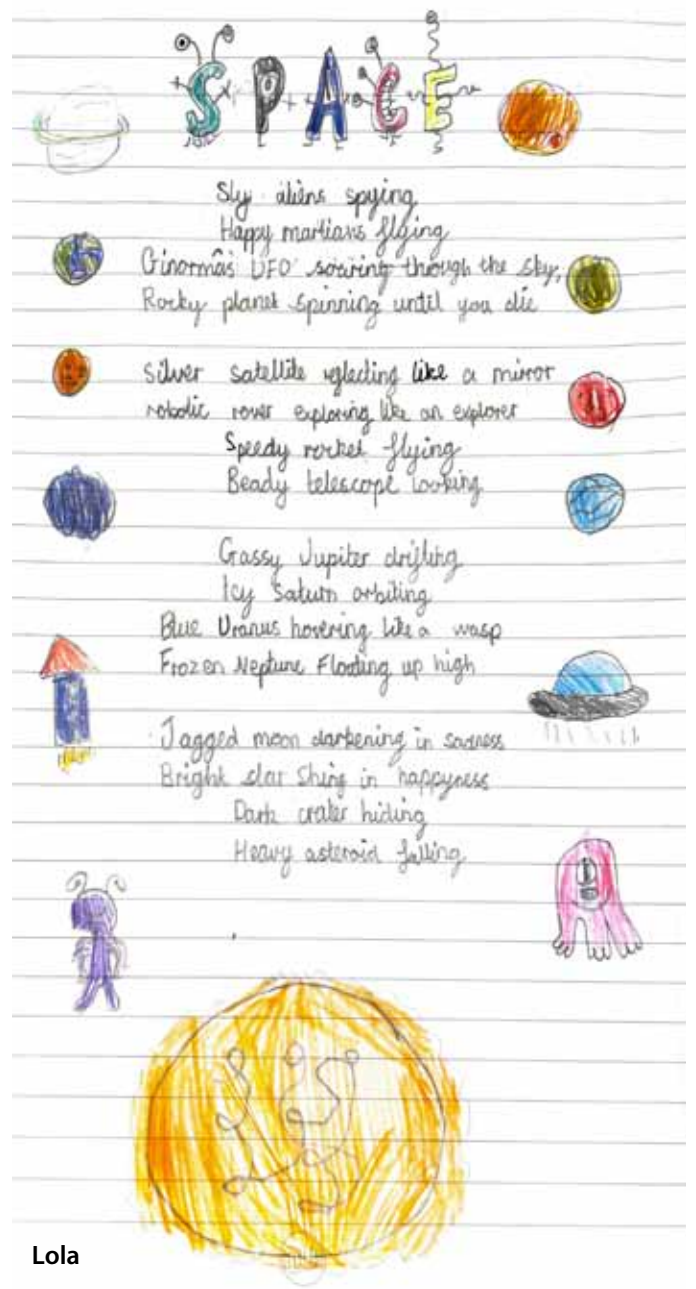 SPACE
Sly aliens spying
Happy martians flying
Ginormas UFO soaring through the sky,
Rocky planet spinning until you die
Silver satellite reflecting like a mirror
robotic rover exploring like an explorer
Speedy rocket flying
Beady telescope looking
Gassy Jupiter drifting
Icy Saturn orbiting
Blue Uranus hovering like a wasp
Frozen Neptune Floating up high
Jagged moon darkening in sadness
Bright star Shing in happyness
Dark crater hiding
Heavy asteroid falling
Lola